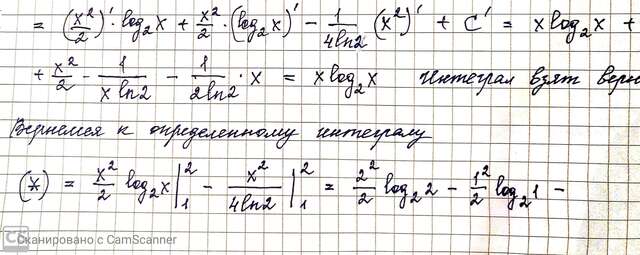 = (x²/2)' · log₂x + x²/2 · (log₂x)' − 1/(4ln2) (x²)' + C' = x log₂x +
+ x²/2 − 1/(x ln2) − 1/(2ln2) · x = x log₂x Интеграл взят верн
Вернемся к определенному интегралу
(*) = x²/2 log₂x |₁² − x²/(4ln2) |₁² = 2²/2 log₂2 − 1²/2 log₂1 −
CS Сканировано с CamScanner